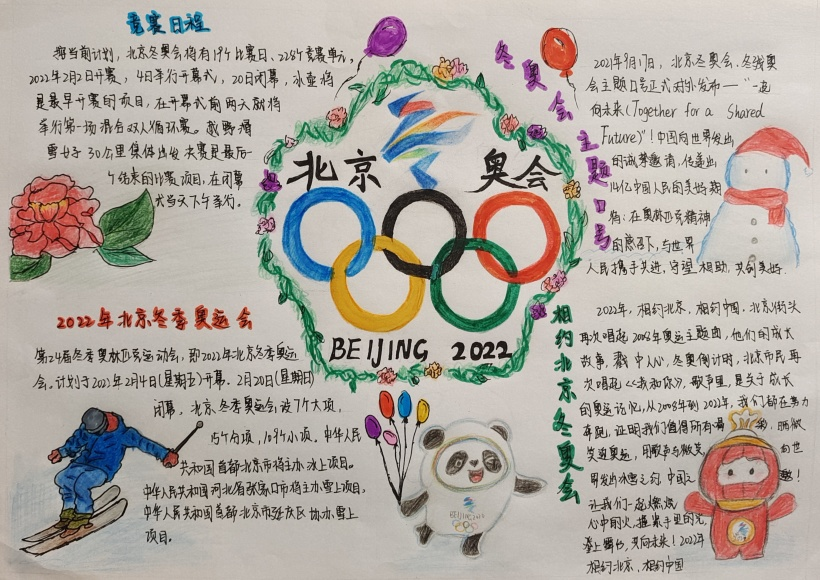 竞赛日程
据当前计划,北京冬奥会将有19个比赛日、228个竞赛单元,
2022年2月2日开赛,4日举行开幕式,20日闭幕,冰壶将
是最早开赛的项目,在开幕式前两天就将
举行第一场混合双人循环赛。越野滑
雪女子30公里集体出发决赛是最后一
个结束的比赛项目,在闭幕
式当天下午举行。
2022年北京冬季奥运会
第24届冬季奥林匹克运动会,即2022年北京冬季奥运
会,计划于2022年2月4日(星期五)开幕,2月20日(星期日)
闭幕,北京冬季奥运会设7个大项,
15个分项,109个小项。中华人民
共和国首都北京市将主办冰上项目。
中华人民共和国河北省张家口市将主办雪上项目,
中华人民共和国首都北京市延庆区协办雪上
项目。
北京 奥会
BEIJING 2022
BEIJING 2022
冬奥会主题口号
2021年9月17日,北京冬奥会、冬残奥
会主题口号正式对外发布——“一起
向未来(Together for a Shared
Future)”!中国向世界发出
的诚挚邀请,传递出
14亿中国人民的美好期
待:在奥林匹克精神
的感召下,与世界
人民携手共进,守望相助,共创美好.
相约北京冬奥会
2022年,相约北京,相约中国,北京街头
再次唱起2008年奥运主题曲,他们的成长
故事,戳中人心,冬奥倒计时,北京市民再
次唱起《我和你》,歌声里,是关于成长
的奥运记忆,从2008年到2022年,我们都在努力
奔跑,证明我们值得所有
笑迎奥运,用歌声与微笑 向世
界发出冰雪之约 中国之 邀!
让我们一起燃烧
心中的火,握紧手里的光
登上舞台,共向未来!2022年
相约北京、相约中国